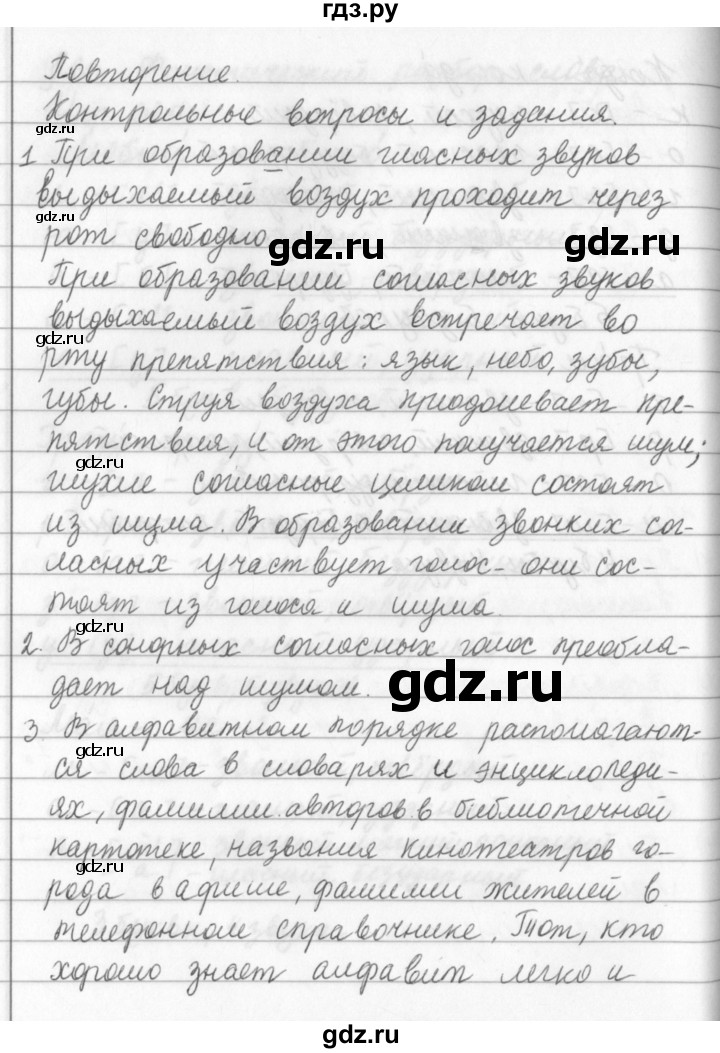 гдз.ру
Повторение.
Контрольные вопросы и задания.
gdz.ru
1 При образовании гласных звуков
выдыхаемый воздух проходит через
gdz.ru
рот свободно
gdz.ru
gdz.ru
При образовании согласных звуков
выдыхаемый воздух встречает во
gdz.ru
рту препятствия: язык, небо, зубы,
губы. Струя воздуха приодолевает пре-
пятствия, и от этого получается шум;
gdz.ru
глухие согласные целиком состоят
из шума. В образовании звонких сог-
ласных участвует голос - они сос-
тоят из голоса и шума.
gdz.ru
2. В сонорных согласных голос преобла-
дает над шумом.
gdz.ru
3. В алфавитном порядке располагают-
gdz.ru
ся слова в словарях и энциклопеди-
ях, фамилии авторов в библиотечной
картотеке, названия кинотеатров го-
gdz.ru
рода в афише, фамилии жителей в
телефонном справочнике. Тот, кто
gdz.ru
хорошо знает алфавит легко и
gdz.ru